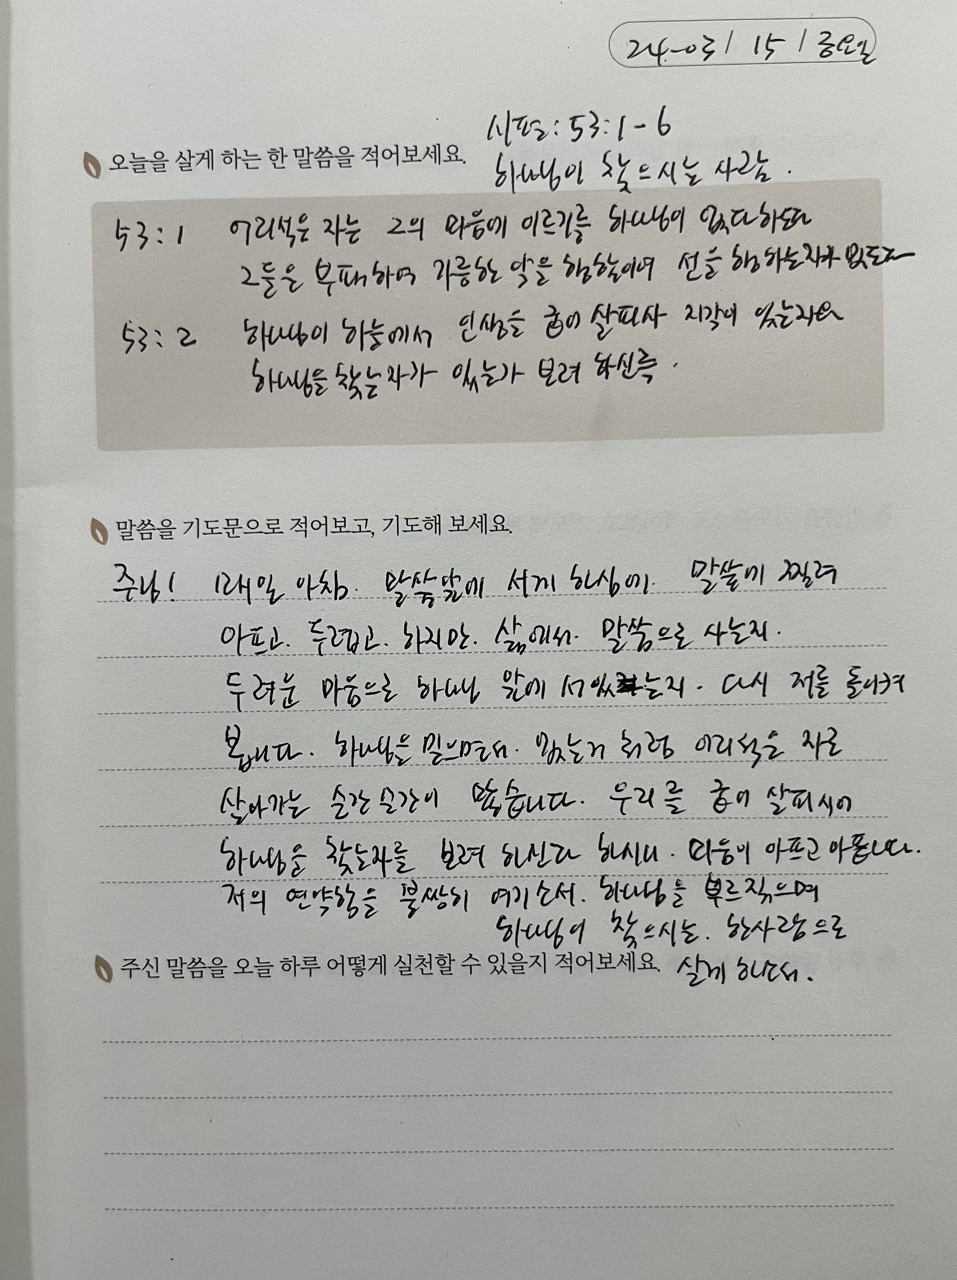 24-03 / 15 / 금요일
시편: 53:1-6
오늘을 살게 하는 한 말씀을 적어보세요.
하나님이 찾으시는 사람.
53:1 어리석은 자는 그의 마음에 이르기를 하나님이 없다하도다
그들은 부패하며 가증한 악을 행함이여 선을 행하는자가 없도다
53:2 하나님이 하늘에서 인생을 굽어 살피사 지각이 있는자와
하나님을 찾는자가 있는가 보려 하신즉.
말씀을 기도문으로 적어보고, 기도해 보세요.
주님! 매일 아침. 말씀앞에 서게 하심에. 말씀에 찔려
아프고. 두렵고. 하지만. 삶에서. 말씀으로 사는지.
두려운 마음으로 하나님 앞에 서있는지. 다시 저를 돌이켜
봅니다. 하나님을 믿으면서. 없는거 처럼 어리석은 자로
살아가는 순간순간이 많습니다. 우리를 굽어 살피시어
하나님을 찾는자를 보려 하신다 하시니. 마음이 아프고 아픕니다.
저의 연약함을 불쌍히 여기소서. 하나님을 부르짖으며
하나님이 찾으시는. 한사람으로
주신 말씀을 오늘 하루 어떻게 실천할 수 있을지 적어보세요. 살게 하소서.